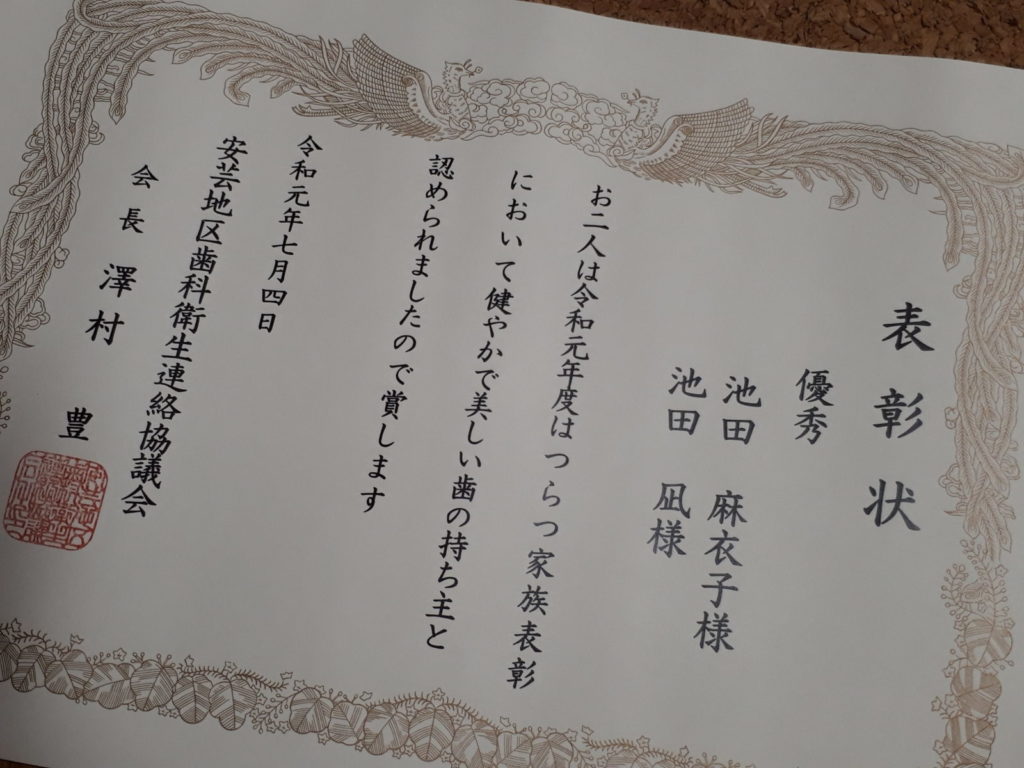 表彰状
優秀
池田 麻衣子様
池田 凪様
お二人は令和元年度はつらつ家族表彰
において健やかで美しい歯の持ち主と
認められましたので賞します
令和元年七月四日
安芸地区歯科衛生連絡協議会
会長 澤村 豊